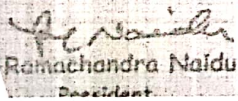 Ramachandra Naidu
President